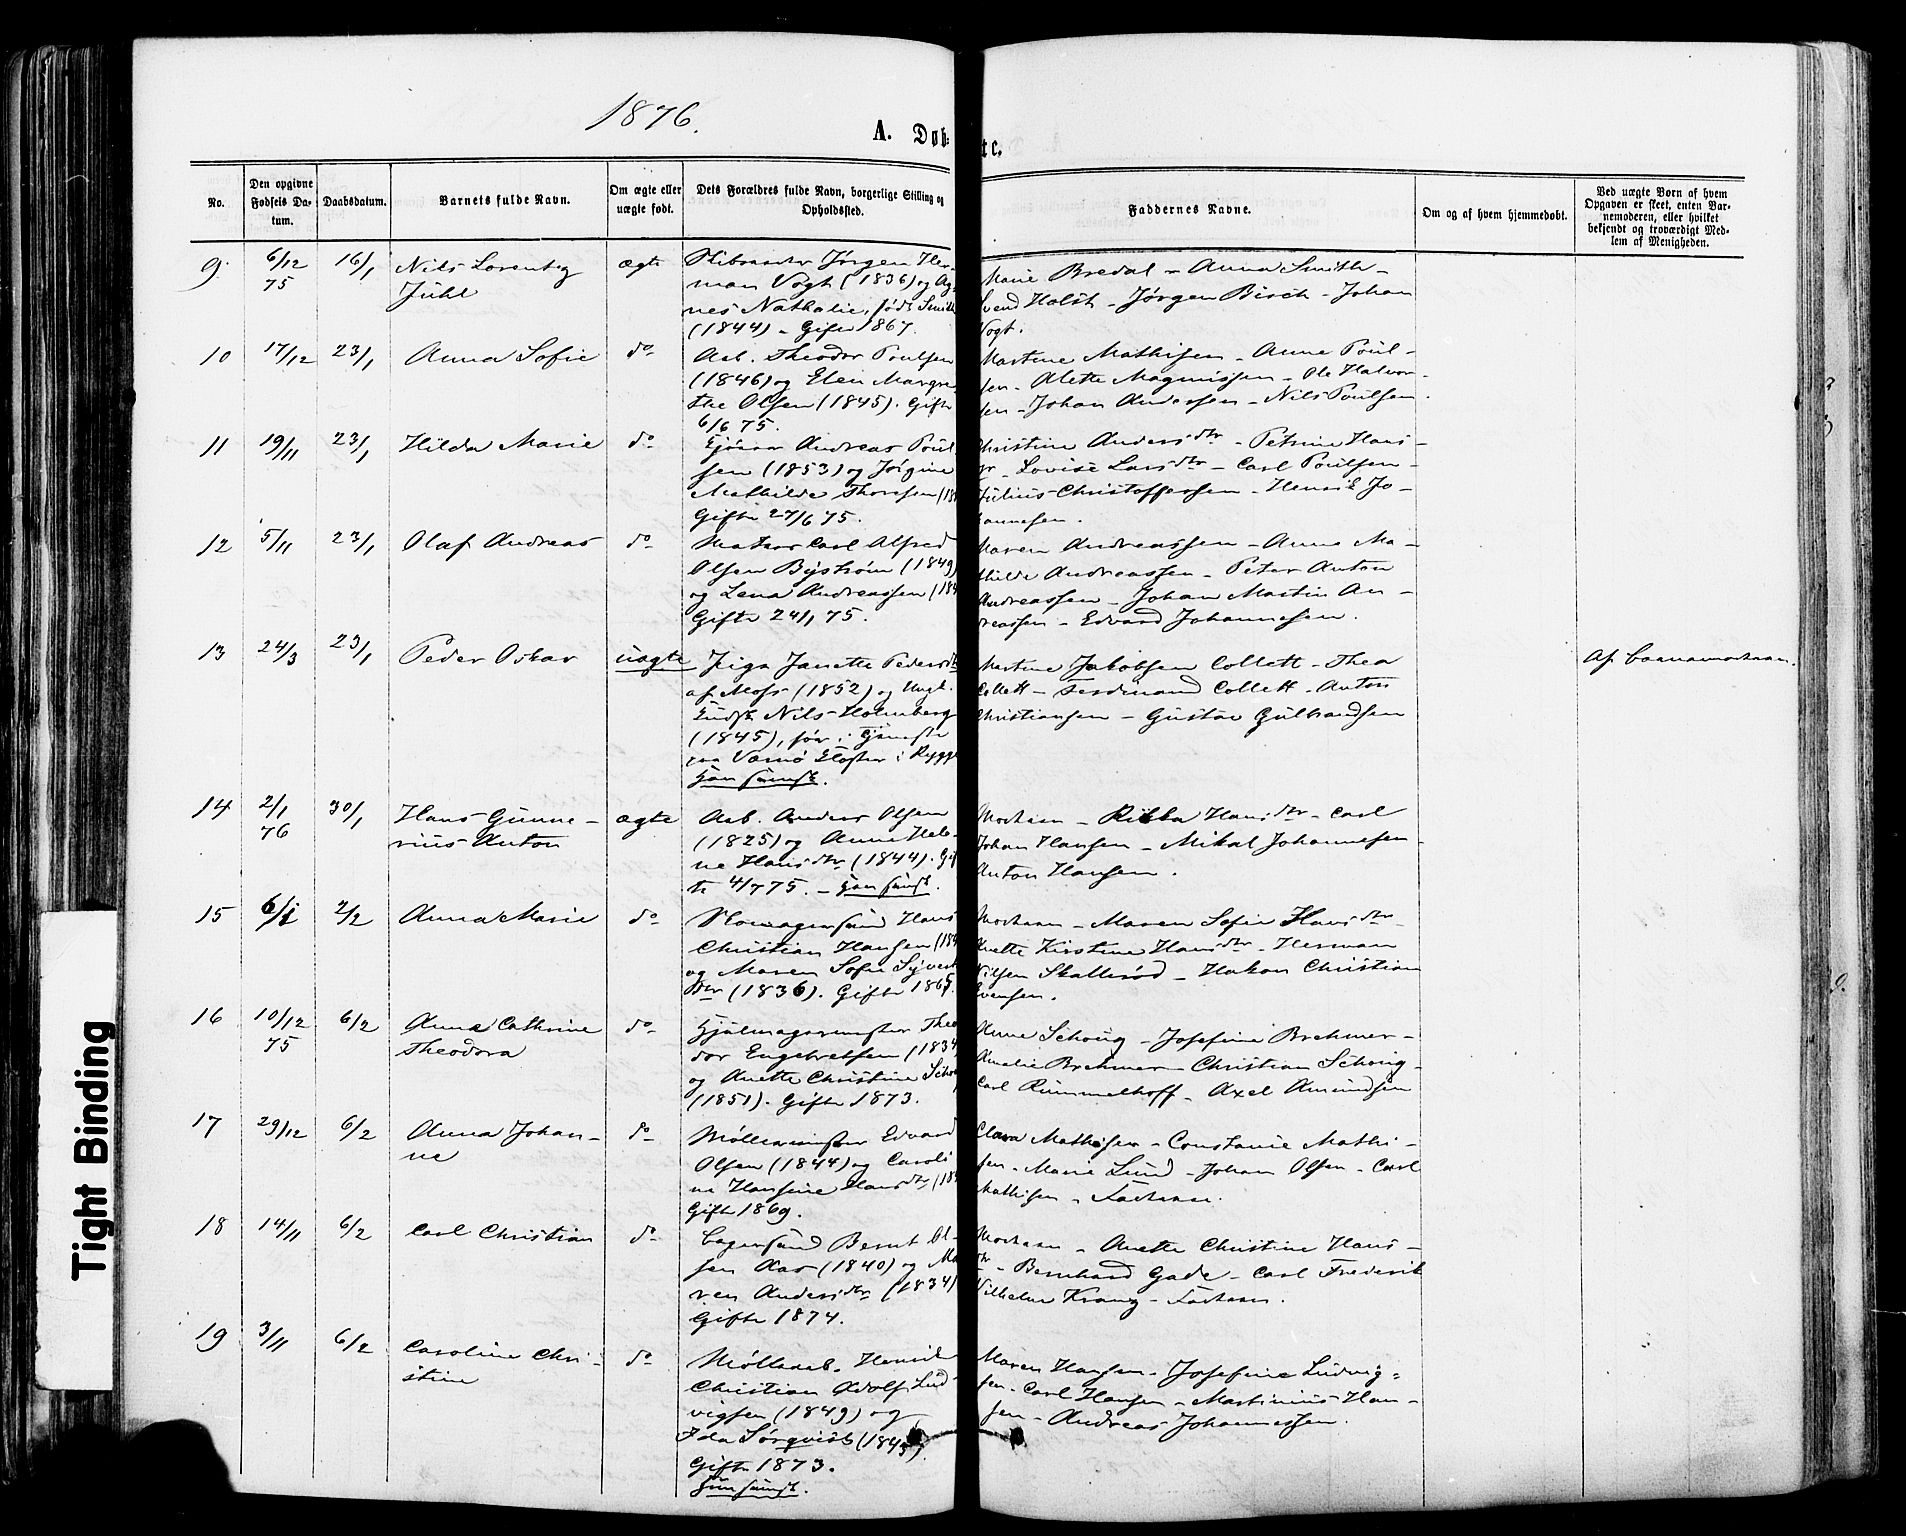 1876.
A. Døb=
tc.
No.
Den opgivne Fødsels Datum.
Daabsdatum.
Barnets fulde Navn.
Om ægte eller uægte født.
Dets Forældres fulde Navn, borgerlige Stilling og Opholdssted.
Faddernes Navne.
Om og af hvem hjemmedøbt.
Ved uægte Børn af hvem
Opgaven er skeet, enten Bar-
nemoderen, eller hvilket
bekjendt og troværdigt Med-
lem af Menigheden.
9. 6/12 75 16/1 Nils Lorentz Juhl ægte
Jørgen Her-
man Vogt (1836) og Ag-
nes Nathalie, født Smith
(1844) - Gifte 1867.
Marie Bredal - Anna Smith -
Svend Holst - Jørgen Birch - Johan
Vogt.
10 17/12 23/1 Anna Sofie do
Arb. Theodor Poulsen
(1846) og Elen Margre
the Olsen (1845). Gifte
6/6 75.
Martine Mathisen - Anne Poul-
sen - Alette Magnussen - Ole Halvor-
sen - Johan Andersen - Nils Poulsen.
11 19/11 23/1 Hilda Marie do
Andreas Poul
sen (1853) og Jørgine
Mathilde Thoresen (18
Gifte 27/6 75.
Christine Andersdtr - Petrine Hans-
dtr - Lovise Larsdtr - Carl Poulsen -
Julius Christoffersen - Henrik Jo-
hannesen.
12 5/11 23/1 Olaf Andreas do
Matros Carl Alfred
Olsen Byström (1849)
og Lena Andreassen (184
Gifte 24/1 75.
Maren Andreassen - Anne Ma-
thilde Andreassen - Peter Anton
Andreassen - Johan Martin An-
dreassen - Edvard Johannesen.
13 24/3 23/1 Peder Oskar uægte
Pige Janette Pedersdtr
af Moss (1852) og Ungk.
Nils Holmberg
(1845), før i Tjeneste
paa Værnø Kloster i Rygge
Martine Jakobsen Collett - Thea
Collett - Ferdinand Collett - Anton
Christiansen - Gustav Gulbrandsen
Af Barnemoderen.
14 2/1 76 30/1 Hans Gunne-
rius Anton ægte
Arb. Anders Olsen
(1825) og Anne Hele-
ne Hansdtr (1844). Gif
te 4/7 75. -
Moderen - Rikka Hansdtr - Carl
Johan Hansen - Mikal Johannesen
Anton Hansen.
15 6/1 2/2 Anna Marie do
Hans
Christian Hansen (184
og Maren Sofie Syvert
dtr (1836). Gifte 1865.
Moderen - Maren Sofie Hansdtr -
Anette Kirstine Hansdtr - Herman
Nilsen Skallerød - Hakon Christian
Evensen.
16 10/12 75 6/2 Anna Cathrine
Theodora do
Hjulmagermester Theo
dor Engebretsen (1834
og Anette Christine Schou
(1851). Gifte 1873.
Anne Schoug - Josefine Brehmer -
Amalie Brehmer - Christian Schoug -
Carl Rummelhoff - Axel Amundsen
17 29/12 6/2 Anna Johan-
ne do
Møllermester Edvard
Olsen (1844) og Caroli
ne Hansine Hansdtr (184
Gifte 1869.
Clara Mathisen - Constance Mathi-
sen - Marie Lund - Johan Olsen - Carl
Mathisen - Faderen.
18 14/11 6/2 Carl Christian do
Bagersvend Bernt Ol-
sen Aas (1840) og Ma
ren Andersdtr (1834)
Gifte 1874.
Moderen - Anette Christine Hans-
dtr - Bernhard Gade - Carl Frederik
Vilhelm Krang - Faderen.
19 3/11 6/2 Caroline Chri-
stine do
Møllearb. Henrik
Christian Adolf Lud-
vigsen (1849) og
Ida Sörqvist (1845).
Gifte 1873.
Maren Hansen - Josefine Ludvig=
sen - Carl Hansen - Martinius Han-
sen - Andreas Johannessen.
Tight Binding